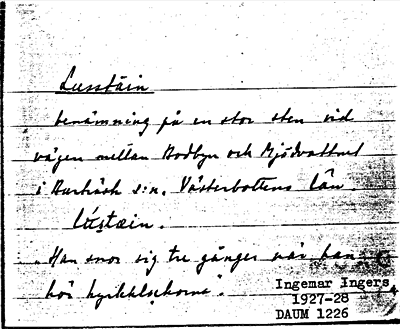 Lusstäin
benämning på en stor sten vid
vägen mellan Bodbyn och Mjödvattnet
i Burträsk s:n. Västerbottens län.
lústæin.
"Han snor sig tre gånger när han
hör kyrkklockorna".
Ingemar Ingers
1927-28
DAUM 1226